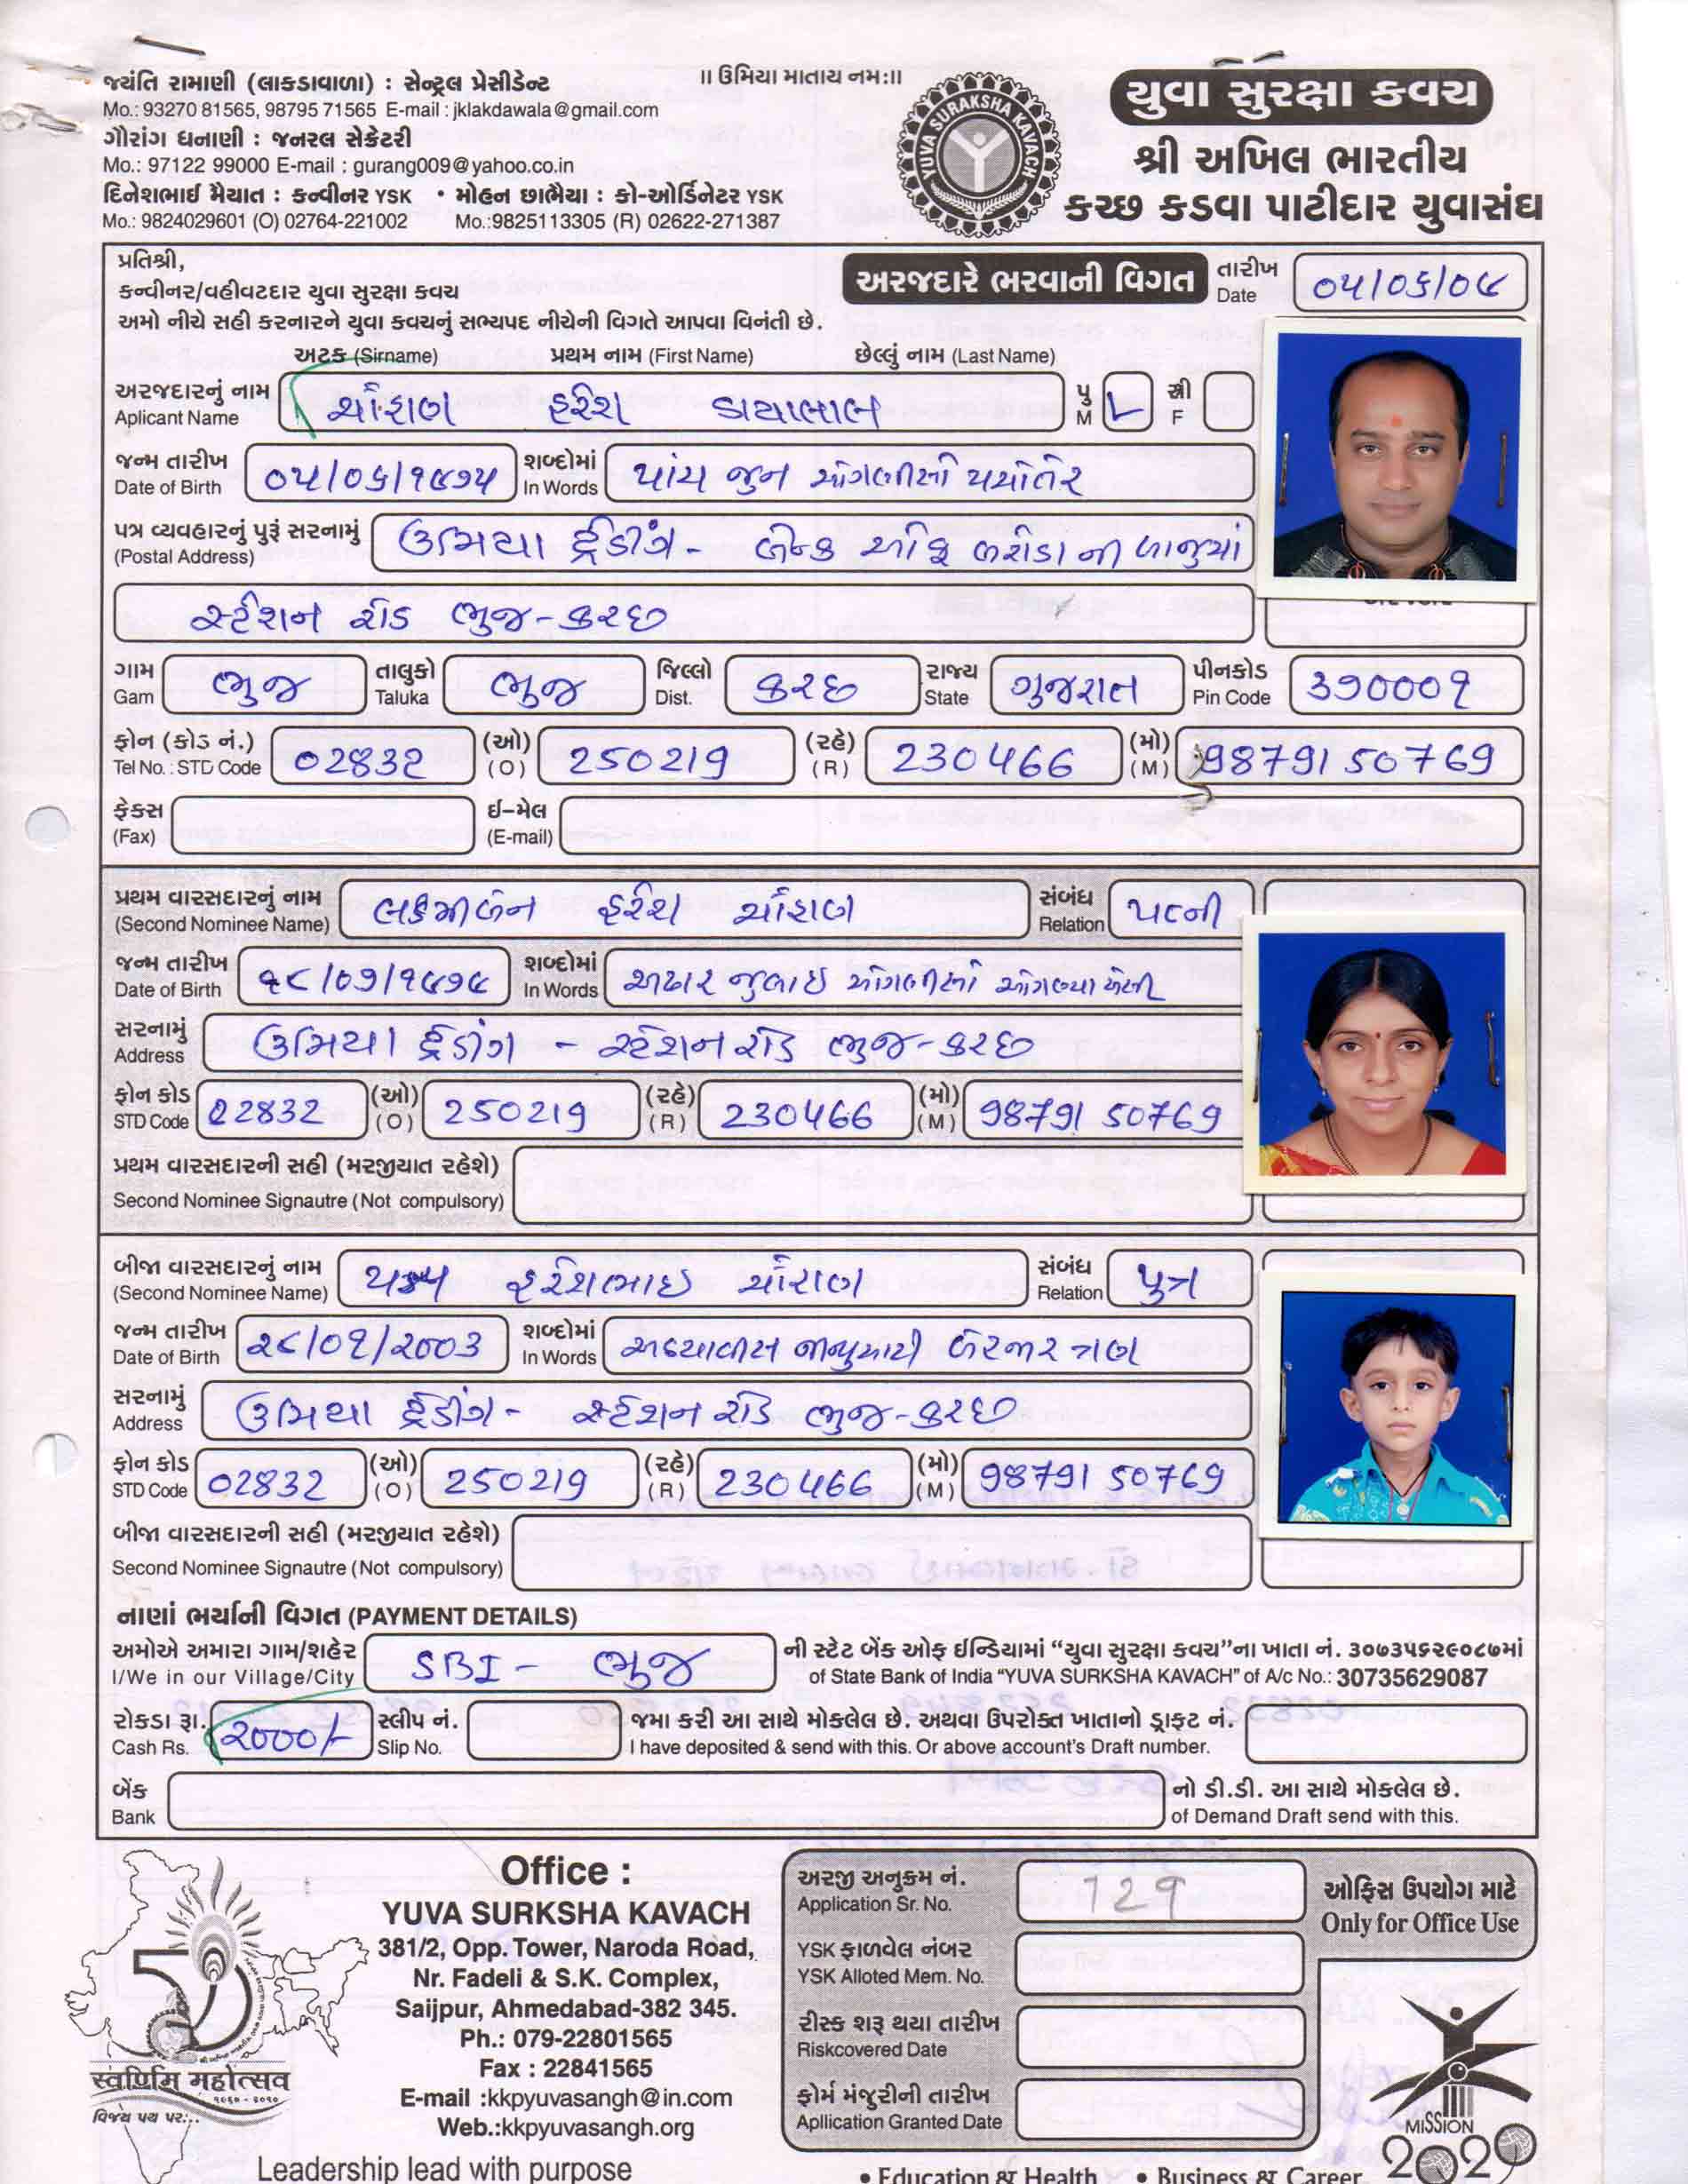 જયંતિ રામાણી (લાકડાવાળા) : સેન્ટ્રલ પ્રેસીડેન્ટ
Mo.: 93270 81565, 98795 71565 E-mail : jklakdawala@gmail.com
ગૌરાંગ ધનાણી : જનરલ સેક્રેટરી
Mo.: 97122 99000 E-mail : gurang009@yahoo.co.in
દિનેશભાઈ મૈયાત : કન્વીનર YSK • મોહન છાભૈયા : કો-ઓર્ડિનેટર YSK
Mo.: 9824029601 (O) 02764-221002 Mo.:9825113305 (R) 02622-271387
॥ ઉમિયા માતાય નમઃ॥
YUVA SURAKSHA KAVACH
યુવા સુરક્ષા કવચ
શ્રી અખિલ ભારતીય
કચ્છ કડવા પાટીદાર યુવાસંઘ
પ્રતિશ્રી,
કન્વીનર/વહીવટદાર યુવા સુરક્ષા કવચ
અમો નીચે સહી કરનારને યુવા કવચનું સભ્યપદ નીચેની વિગતે આપવા વિનંતી છે.
અરજદારે ભરવાની વિગત
તારીખ
Date ૦૫/૦૬/૦૯
અટક (Sirname) પ્રથમ નામ (First Name) છેલ્લું નામ (Last Name)
અરજદારનું નામ
Aplicant Name ચૌહાણ હરેશ ડાયાલાલ પુ M સ્ત્રી F
જન્મ તારીખ
Date of Birth ૦૫/૦૬/૧૯૭૫ શબ્દોમાં In Words પાંચ જુન ઓગણીસો પચોતેર
પત્ર વ્યવહારનું પુરૂં સરનામું
(Postal Address) ઉમિયા ટ્રેડીંગ - બેન્ક ઓફ બરોડા ની બાજુમાં
સ્ટેશન રોડ ભુજ-કચ્છ
ગામ Gam ભુજ તાલુકો Taluka ભુજ જિલ્લો Dist. કચ્છ રાજ્ય State ગુજરાત પીનકોડ Pin Code ૩૭૦૦૦૧
ફોન (કોડ નં.)
Tel No.: STD Code 02832 (ઓ) (O) 250219 (રહે) (R) 230466 (મો) (M) 98791 50769
ફેક્સ (Fax) ઈ-મેલ (E-mail)
પ્રથમ વારસદારનું નામ
(Second Nominee Name) લક્ષ્મીબેન હરેશ ચૌહાણ સંબંધ Relation પત્ની
જન્મ તારીખ
Date of Birth ૧૮/૦૭/૧૯૭૯ શબ્દોમાં In Words અઢાર જુલાઇ ઓગણીસો
સરનામું
Address ઉમિયા ટ્રેડીંગ - સ્ટેશન રોડ ભુજ-કચ્છ
ફોન કોડ
STD Code 02832 (ઓ) (O) 250219 (રહે) (R) 230466 (મો) (M) 98791 50769
પ્રથમ વારસદારની સહી (મરજીયાત રહેશે)
Second Nominee Signautre (Not compulsory)
બીજા વારસદારનું નામ
(Second Nominee Name) હરેશભાઇ ચૌહાણ સંબંધ Relation પુત્ર
જન્મ તારીખ
Date of Birth ૨૮/૦૧/૨૦૦૩ શબ્દોમાં In Words અઠયાવીસ જાન્યુઆરી બેહજાર ત્રણ
સરનામું
Address ઉમિયા ટ્રેડીંગ - સ્ટેશન રોડ ભુજ-કચ્છ
ફોન કોડ
STD Code 02832 (ઓ) (O) 250219 (રહે) (R) 230466 (મો) (M) 98791 50769
બીજા વારસદારની સહી (મરજીયાત રહેશે)
Second Nominee Signautre (Not compulsory)
નાણાં ભર્યાની વિગત (PAYMENT DETAILS)
અમોએ અમારા ગામ/શહેર SBI - ભુજ ની સ્ટેટ બેંક ઓફ ઈન્ડિયામાં “યુવા સુરક્ષા કવચ”ના ખાતા નં. ૩૦૭૩૫૬૨૯૦૮૭માં
I/We in our Village/City of State Bank of India “YUVA SURKSHA KAVACH” of A/c No.: 30735629087
રોકડા રૂા. ૨૦૦૦/- સ્લીપ નં. જમા કરી આ સાથે મોકલેલ છે. અથવા ઉપરોક્ત ખાતાનો ડ્રાફ્ટ નં.
Cash Rs. Slip No. I have deposited & send with this. Or above account's Draft number.
બેંક નો ડી.ડી. આ સાથે મોકલેલ છે.
Bank of Demand Draft send with this.
50
स्वर्णिम महोत्सव
૧૯૬૦ - ૨૦૧૦
વિજય પથ પર...
Office :
YUVA SURKSHA KAVACH
381/2, Opp. Tower, Naroda Road,
Nr. Fadeli & S.K. Complex,
Saijpur, Ahmedabad-382 345.
Ph.: 079-22801565
Fax : 22841565
E-mail :kkpyuvasangh@in.com
Web.:kkpyuvasangh.org
Leadership lead with purpose
અરજી અનુક્રમ નં.
Application Sr. No. 729
YSK ફાળવેલ નંબર
YSK Alloted Mem. No.
રીસ્ક શરૂ થયા તારીખ
Riskcovered Date
ફોર્મ મંજુરીની તારીખ
Apllication Granted Date
ઓફિસ ઉપયોગ માટે
Only for Office Use
MISSION
2020
• Education & Health • Business & Career